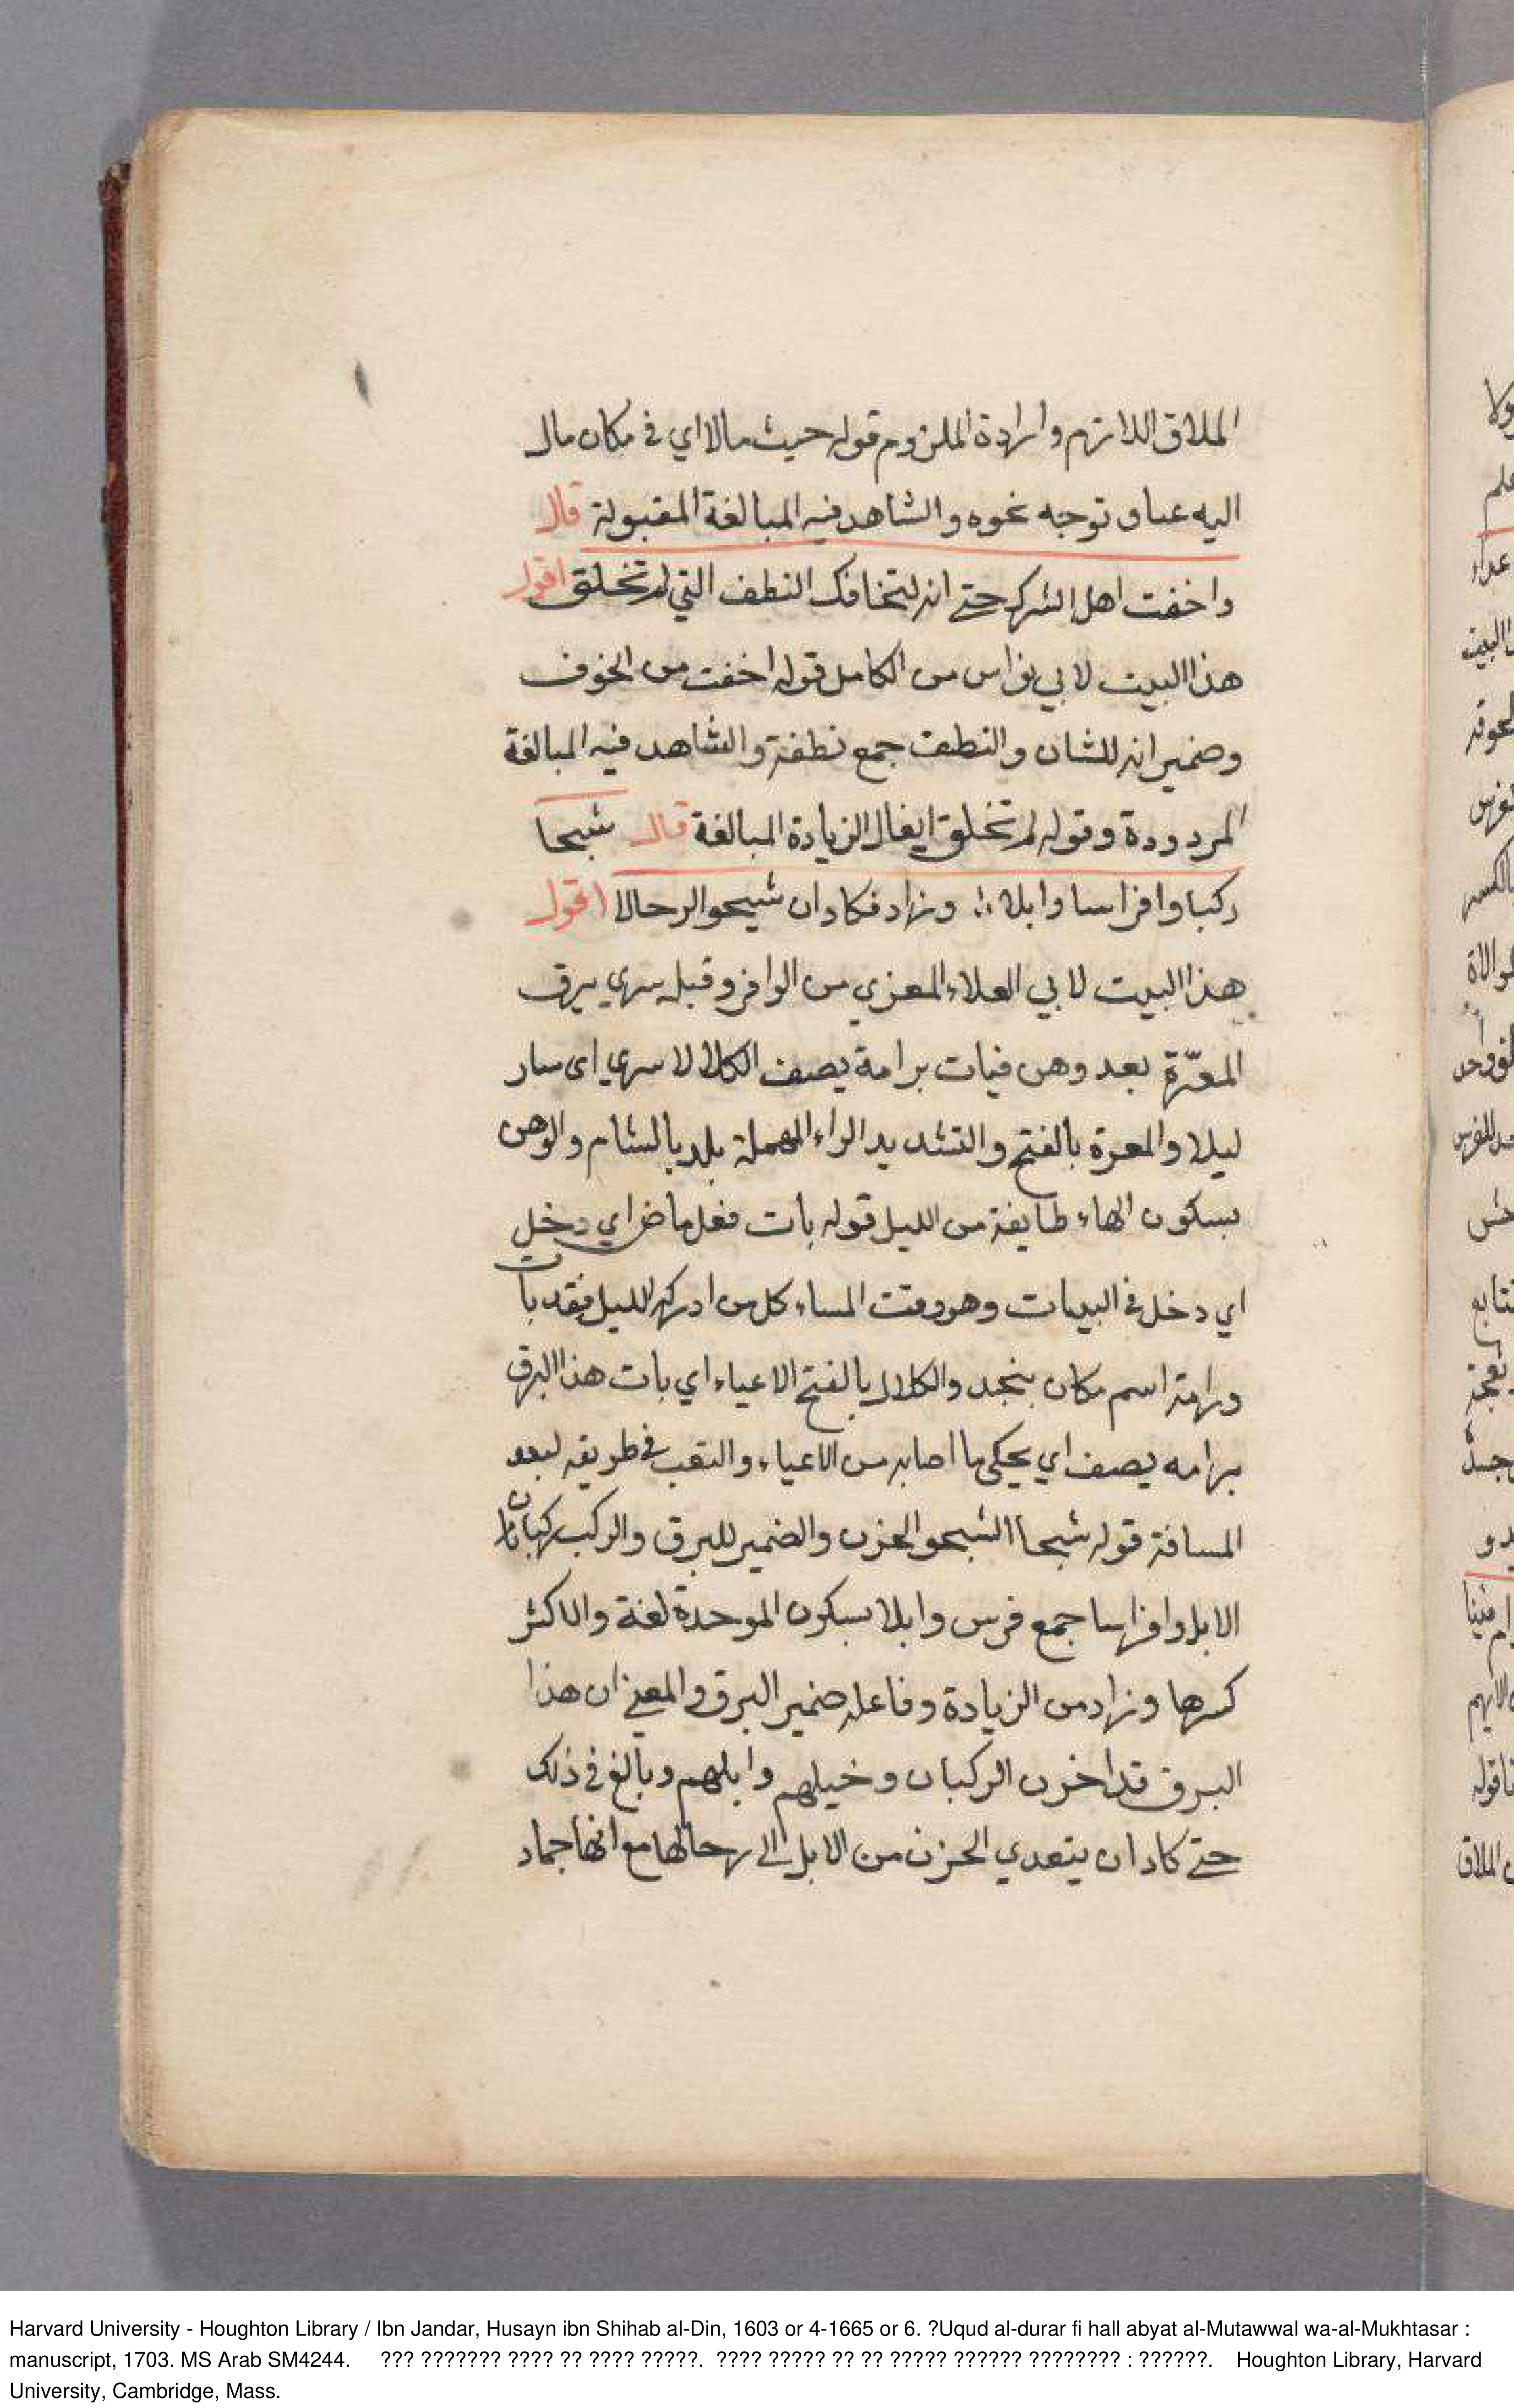 الملاق اللازم وارادة الملزوم قوله حيث مالا اي في مكان مال
اليه عنا و توجه نحوه والشاهد فيه المبالغة المقبولة قال
واخفت اهل الشرك حتي انه لتخافك النطف التي لم تخلق اقول
هذا البيت لابي نواس من الكامل قوله اخفت من الخوف
وضمير انه للشان والنطف جمع نطفة والشاهد فيه المبالغة
المردودة وقوله لم تخلق ايغال الزيادة المبالغة قال شجا
ركبا وافراسا وابلا وزاد فكاد ان شيحو الرحالا اقول
هذا البيت لابي العلاء المعري من الوافر وقبله سري برق
المعرّة بعد وهن فبات برامة يصف الكلالا سري اى سار
ليلا والمعرة بالفتح والتشديد الراء المهملة بلد بالشام والوهن
بسكون الهاء طايفة من الليل قوله بات فعل ماض اي دخل
اي دخل في البيات وهو وقت المساء كل من ادركه الليل فقد بات
ورامة اسم مكان بنجد والكلال بالفتح الاعياء اي بات هذا البرق
برامه يصف اي يحكي ما اصابه من الاعياء والتعب في طريقه لبعد
المسافة قوله شجا الشجو الحزن والضمير للبرق والركب ركبان
الابل وافراسا جمع فرس وابلا بسكون الموحدة لغة والاكثر
كسرها وزاد من الزيادة وفاعله ضمير البرق والمعني ان هذا
البرق قد احزن الركبان وخيلهم وابلهم وبالغ في ذلك
حتي كاد ان يتعدي الحزن من الابل الي رحالها مع انها جماد
ولا
علم
عداء
البيت
الفرس
بالكسر
تتابع
قوله
الملاق
Harvard University - Houghton Library / Ibn Jandar, Husayn ibn Shihab al-Din, 1603 or 4-1665 or 6. ?Uqud al-durar fi hall abyat al-Mutawwal wa-al-Mukhtasar :
manuscript, 1703. MS Arab SM4244. ??? ??????? ???? ?? ???? ?????. ???? ????? ?? ?? ????? ?????? ???????? : ??????. Houghton Library, Harvard
University, Cambridge, Mass.